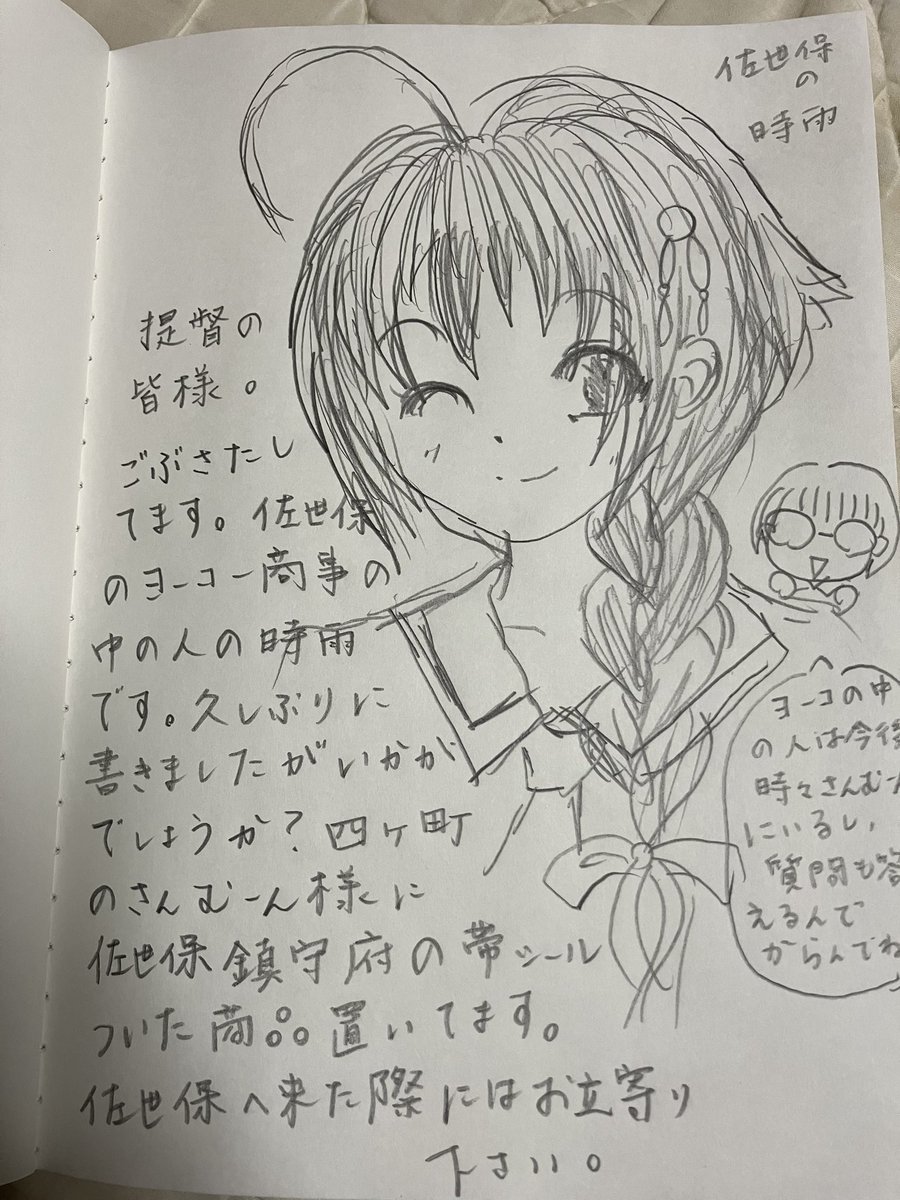 佐世保
の
時雨
提督の
皆様。
ごぶさたし
てます。佐世保
のヨーコー商事の
中の人の時雨
です。久しぶりに
書きましたがいかが
でしょうか?四ヶ町
のさんむーん様に
佐世保鎮守府の帯シール
ついた商品置いてます。
佐世保へ来た際にはお立寄り
下さい。
ヨーコの中
の人は今後
時々さんむーん
にいるし,
質問も答
えるんで
からんでね